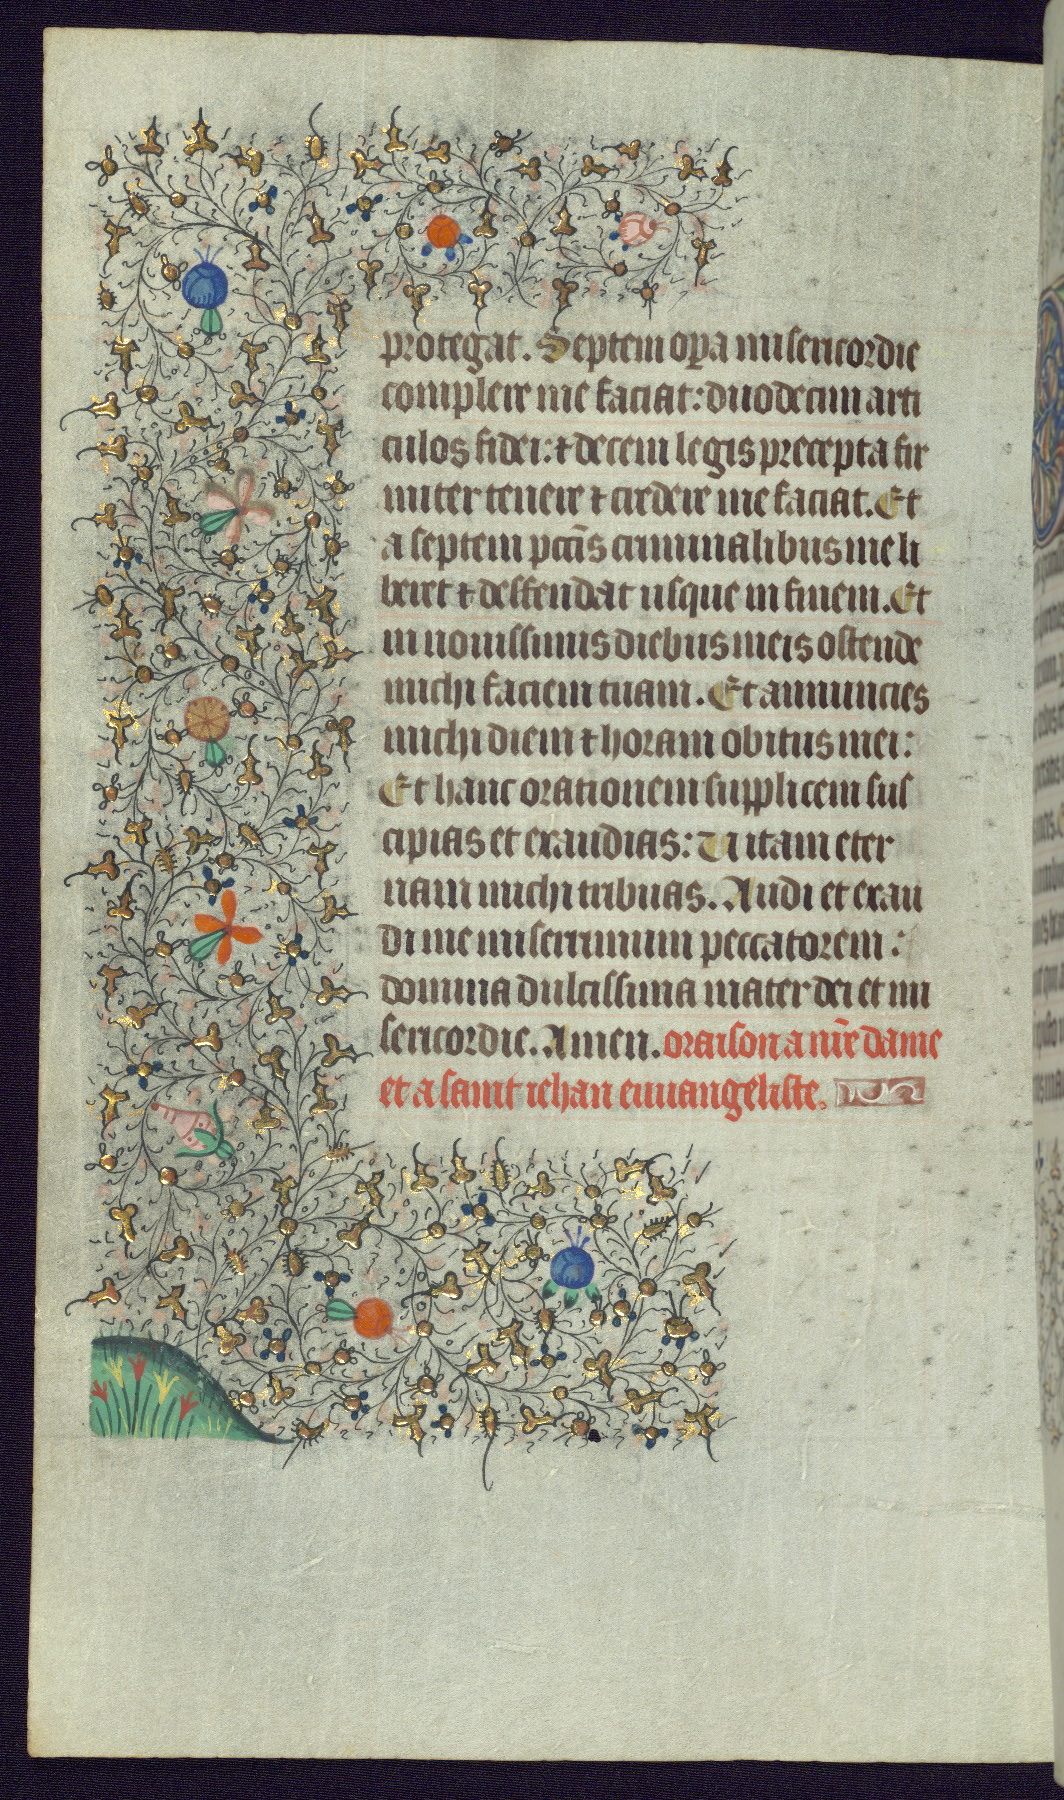 protegat. Septem opa misericordie
complere me faciat: duodecim arti
culos fidei: ⁊ decem legis precepta fir
miter tenere ⁊ credere me faciat. Et
a septem pctis criminalibus me li
beret ⁊ deffendat usque in finem. Et
in nouissimis diebus meis ostende
michi faciem tuam. Et annuncies
michi diem ⁊ horam obitus mei:
Et hanc orationem supplicem sus
cipias et exaudias: Uitam eter
nam michi tribuas. Audi et exau
di me miserrimum peccatorem:
domina dulcissima mater dei et mi
sericordie. Amen. oraison a nr̄e dame
et a saint iehan euuangeliste.